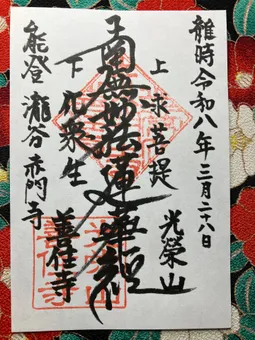 維時令和八年三月二十八日
上求菩提
光榮山
南無妙法蓮華経
下化衆生
善住寺
能登 瀧谷 赤門寺